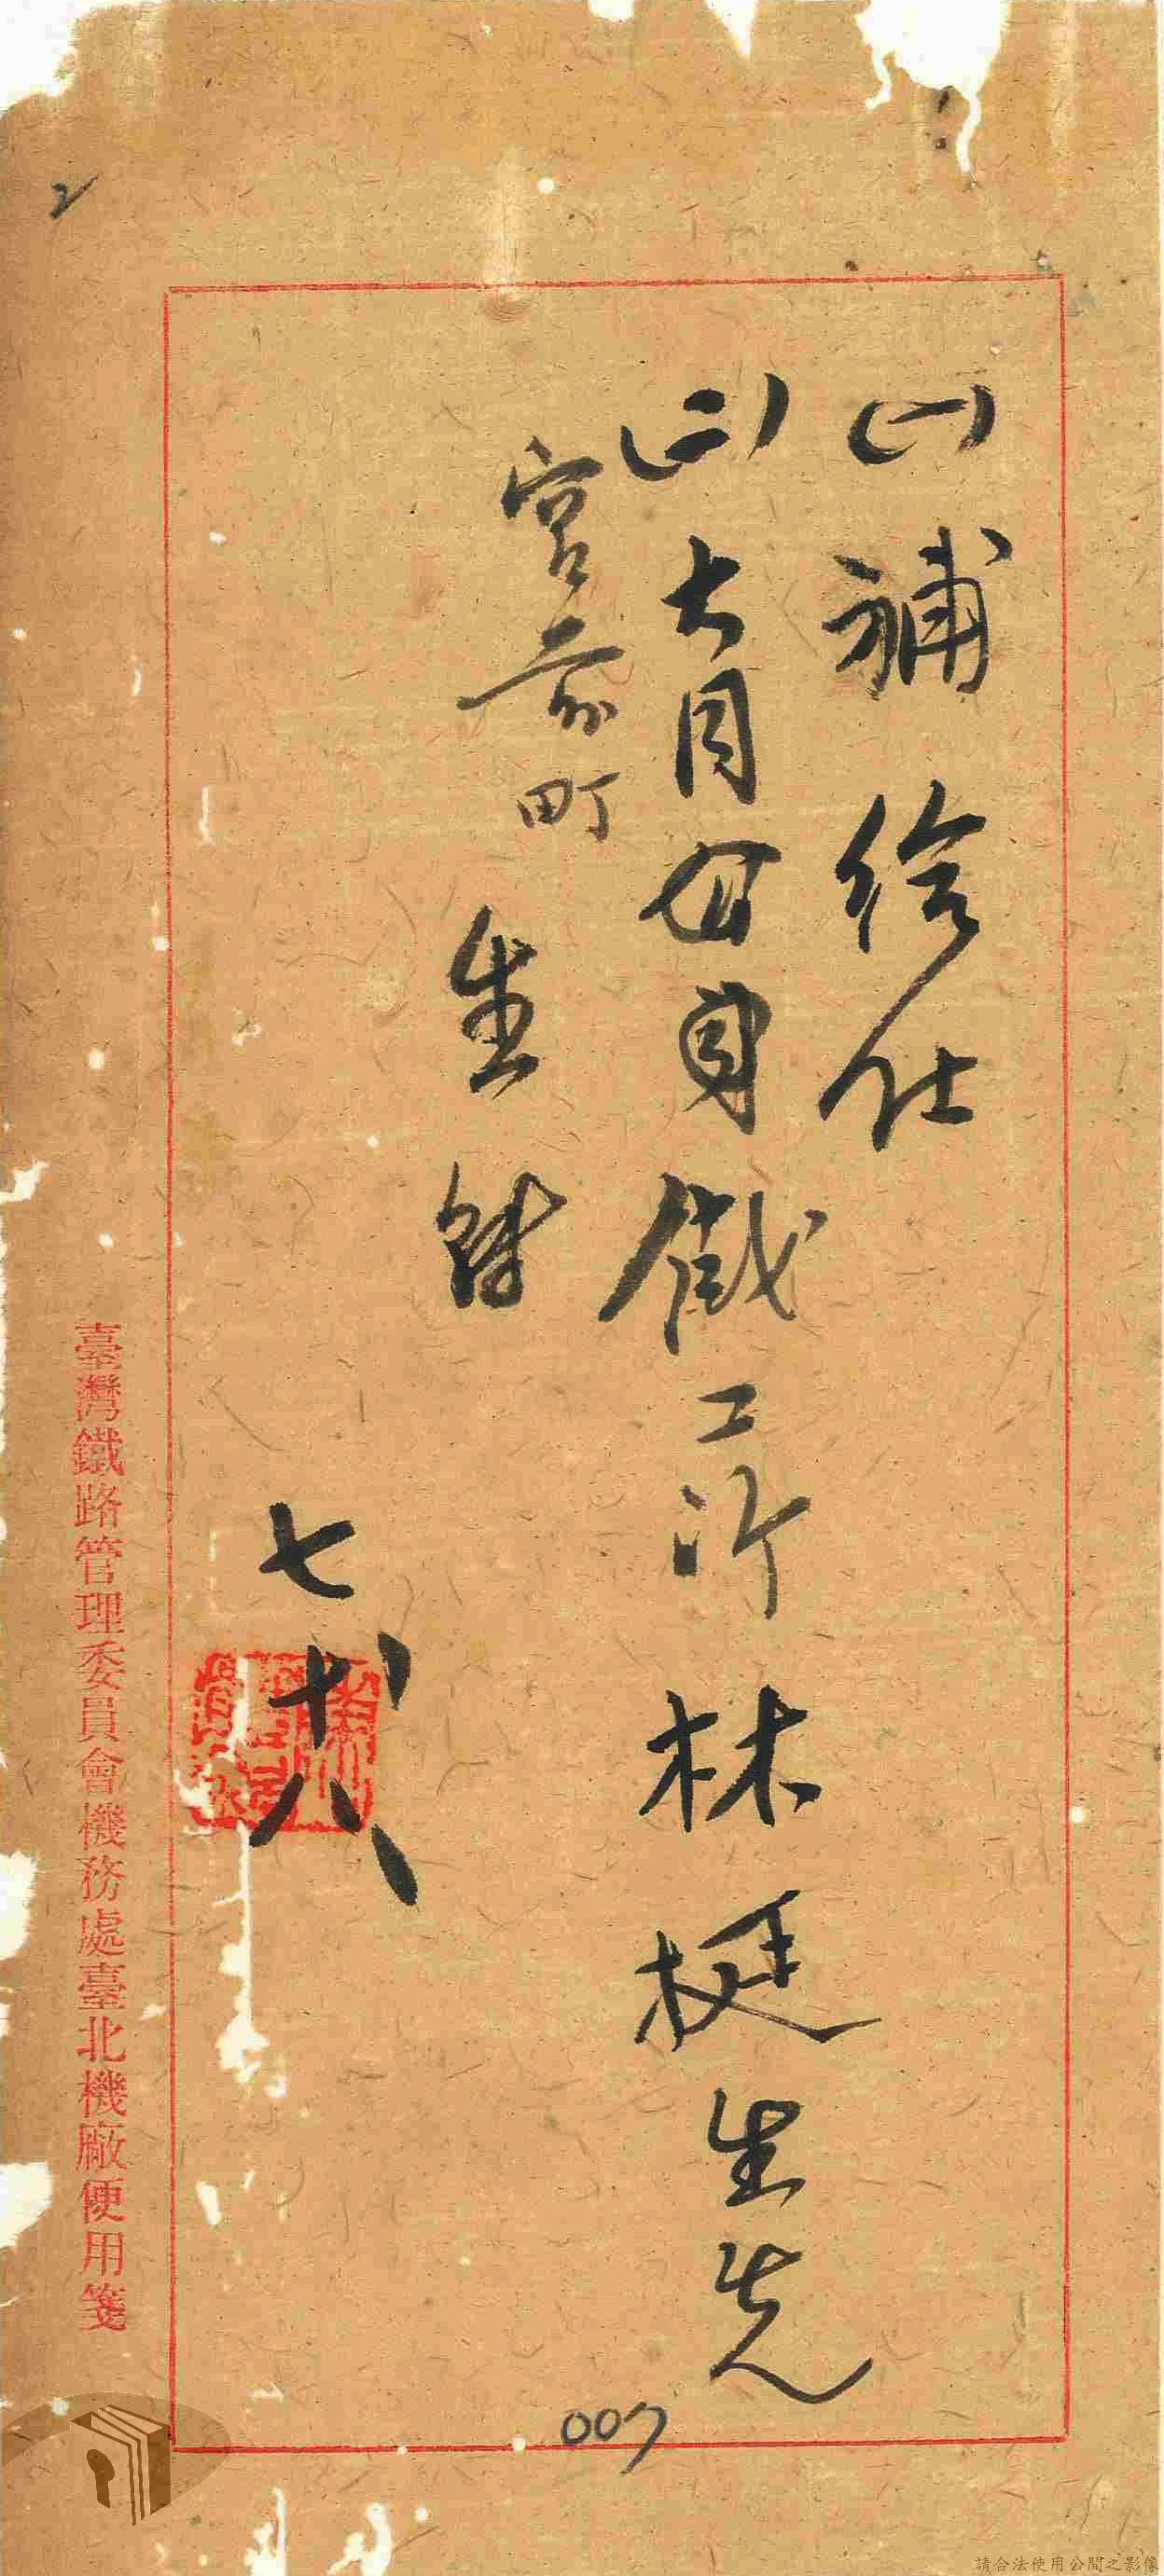 (一)補給仕
(二)大同母自鐵工所林挺生先
宮前町
生
七、十八、
臺灣鐵路管理委員會機務處臺北機廠便用箋
2
007
請合法使用公開之影像